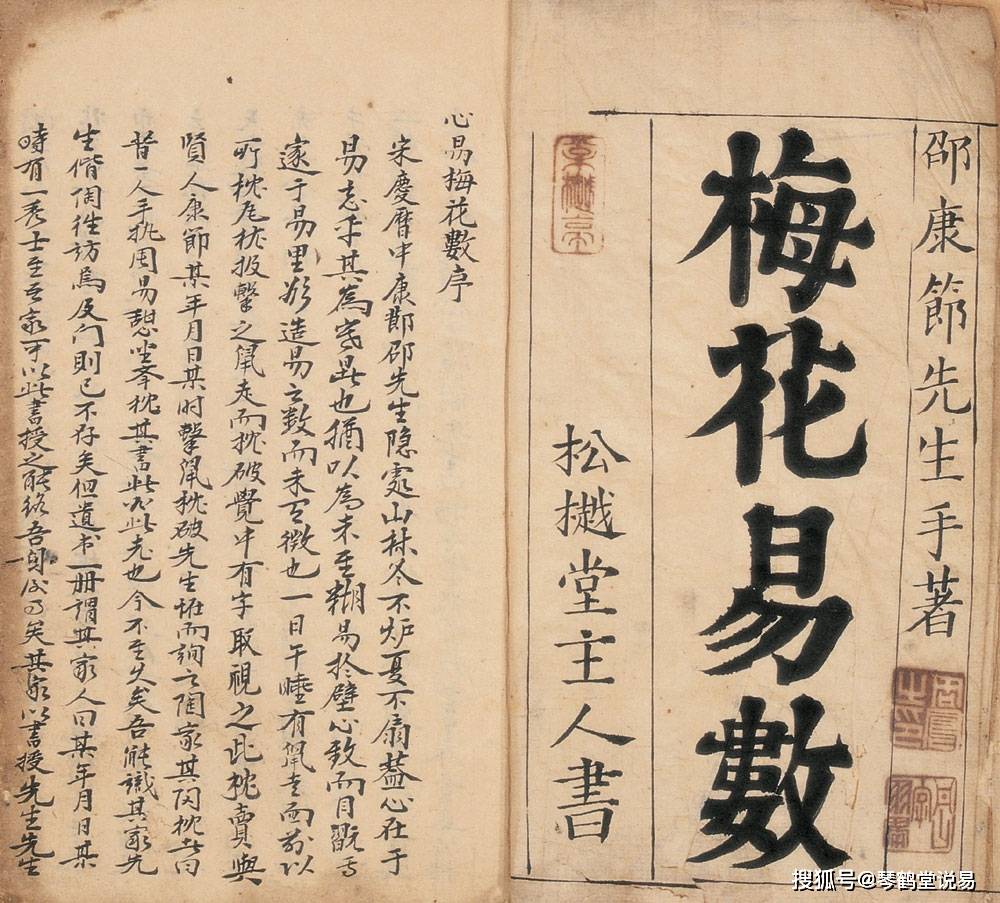 邵康節先生手著
梅花易數
松堂主人書
心易梅花數序
宋慶曆中康節邵先生隐處山林冬不炉夏不扇蓋心在于
易忘乎其為寒暑也猶以為未至糊易於壁心致而目翫焉
邃于易里欲造易之数而未有徵也一日午睡有鼠走而前以
所枕瓦枕投擊之鼠走而枕破覺中有字取視之此枕賣與
賢人康節某年月日某时擊鼠枕破先生怪而詢之陶家其陶枕者曰
昔一人手执周易憩坐奉枕其書此必此老也今不至久矣吾能識其家先
生偕陶徃訪焉及门則已不存矣但遺书一册謂其家人曰某年月日某
時有一秀士至吾家可以此書授之能終吾身後事矣其家以書授先生先生
搜狐号@琴鹤堂说易